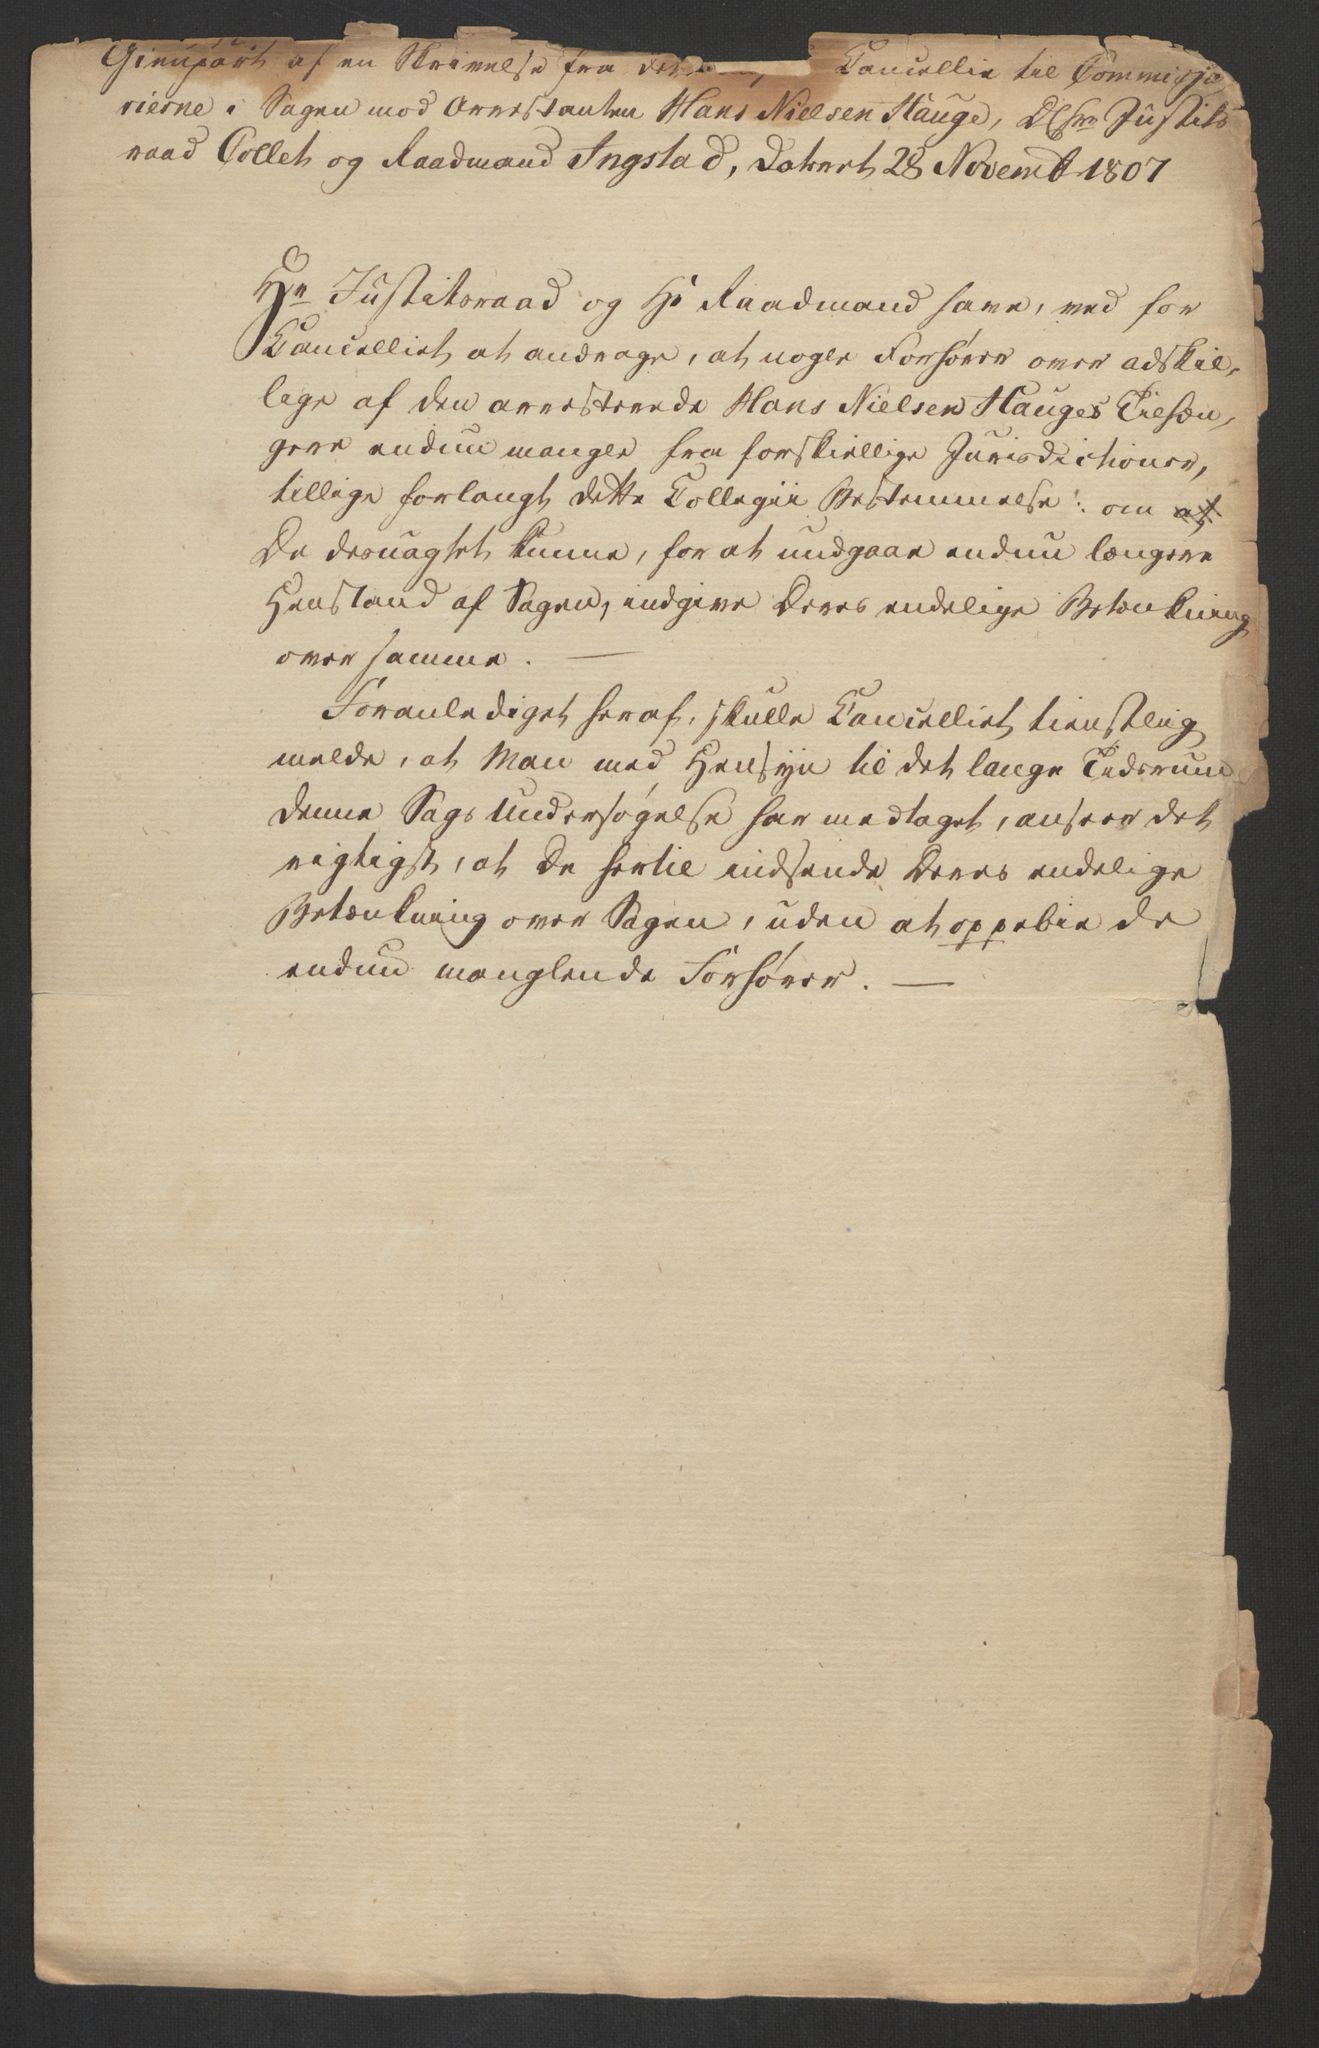 Gienpart af en Skrivelse fra det Cancellie til Commissa
rierne i Sagen mod Arrestanten Hans Nielsen Hauge, Justits
raad Collet og Raadmand Ingstad, Datert 28 Novemb 1807
Hr Justitsraad og Hr Raadmand have, ved for
Cancelliet at andrage, at nogle Forhører over adskil-
lige af den arresterede Hans Nielsen Hauges Tilhæn-
gere endnu mangle fra forskiellige Jurisdictioner,
tillige forlangt dette Collegii Bestemmelse: om at
De desuagtet kunne, for at undgaae endnu længere
Henstand af Sagen, indgive Deres endelige Betænkning
over samme. —
Foranlediget heraf, skulle Cancelliet tienstlig
melde, at Man med Hensyn til det lange Tidsrum
denne Sags Undersøgelse har medtaget, anseer det
rigtigst, at De hertil indsende Deres endelige
Betænkning over Sagen, uden at oppebie de
endnu manglende Forhører. —